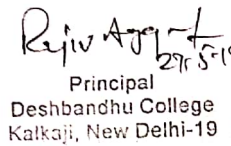 Rajiv Aggarwal
27-5-19
Principal
Deshbandhu College
Kalkaji, New Delhi-19